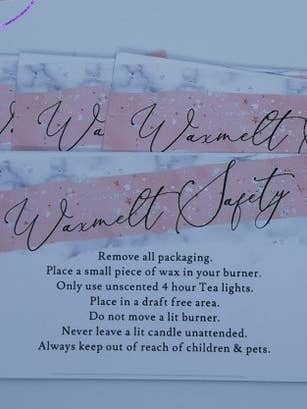 Wa
Waxmelt S
Waxmelt Safety
Remove all packaging.
Place a small piece of wax in your burner.
Only use unscented 4 hour Tea lights.
Place in a draft free area.
Do not move a lit burner.
Never leave a lit candle unattended.
Always keep out of reach of children & pets.